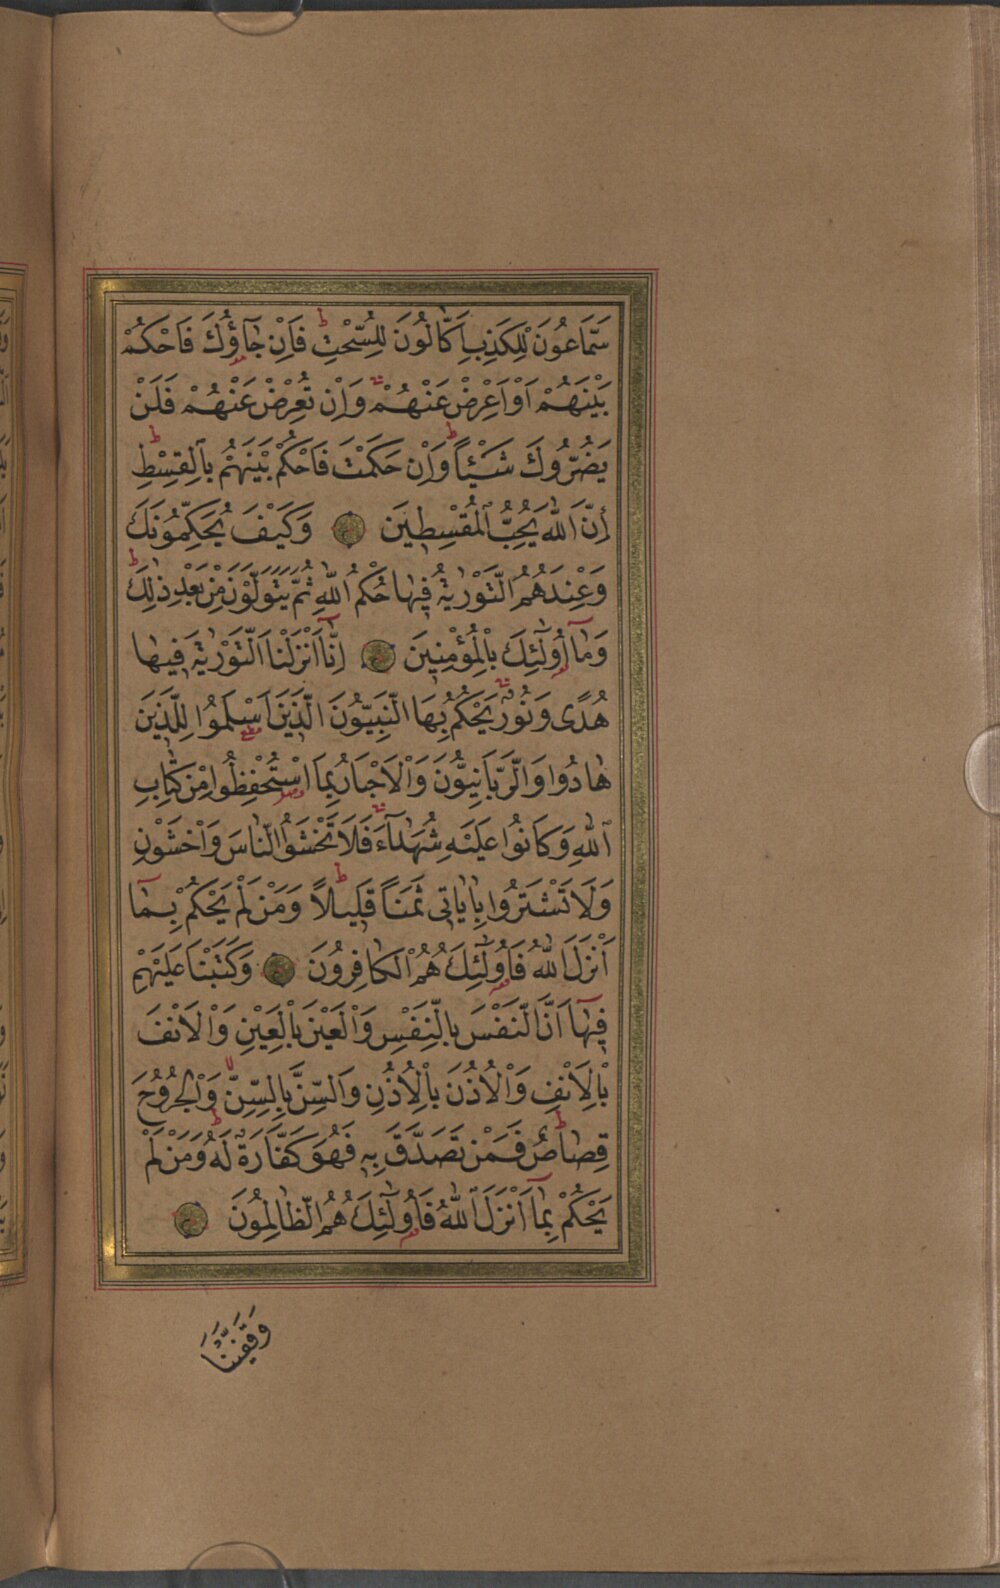 سَمَّاعُونَ لِلْكَذِبِ اَكَّالُونَ لِلسُّحْتِ فَاِنْ جَٓاؤُ۫كَ فَاحْكُمْ
بَيْنَهُمْ اَوْ اَعْرِضْ عَنْهُمْ وَاِنْ تُعْرِضْ عَنْهُمْ فَلَنْ
يَضُرُّوكَ شَيْـًٔا وَاِنْ حَكَمْتَ فَاحْكُمْ بَيْنَهُمْ بِالْقِسْطِ
اِنَّ اللّٰهَ يُحِبُّ الْمُقْسِطِينَ وَكَيْفَ يُحَكِّمُونَكَ
وَعِنْدَهُمُ التَّوْرٰيةُ فِيهَا حُكْمُ اللّٰهِ ثُمَّ يَتَوَلَّوْنَ مِنْ بَعْدِ ذٰلِكَ
وَمَٓا اُولٰٓئِكَ بِالْمُؤْمِنِينَ اِنَّٓا اَنْزَلْنَا التَّوْرٰيةَ فِيهَا
هُدًى وَنُورٌ يَحْكُمُ بِهَا النَّبِيُّونَ الَّذِينَ اَسْلَمُوا لِلَّذِينَ
هَادُوا وَالرَّبَّانِيُّونَ وَالْاَحْبَارُ بِمَا اسْتُحْفِظُوا مِنْ كِتَابِ
اللّٰهِ وَكَانُوا عَلَيْهِ شُهَدَٓاءَ فَلَا تَخْشَوُا النَّاسَ وَاخْشَوْنِ
وَلَا تَشْتَرُوا بِاٰيَاتِى ثَمَنًا قَلِيلًا وَمَنْ لَمْ يَحْكُمْ بِمَٓا
اَنْزَلَ اللّٰهُ فَاُولٰٓئِكَ هُمُ الْكَافِرُونَ وَكَتَبْنَا عَلَيْهِمْ
فِيهَٓا اَنَّ النَّفْسَ بِالنَّفْسِ وَالْعَيْنَ بِالْعَيْنِ وَالْاَنْفَ
بِالْاَنْفِ وَالْاُذُنَ بِالْاُذُنِ وَالسِّنَّ بِالسِّنِّ وَالْجُرُوحَ
قِصَاصٌ فَمَنْ تَصَدَّقَ بِهِ فَهُوَ كَفَّارَةٌ لَهُ وَمَنْ لَمْ
يَحْكُمْ بِمَٓا اَنْزَلَ اللّٰهُ فَاُولٰٓئِكَ هُمُ الظَّالِمُونَ
وَقَفَّيْنَا